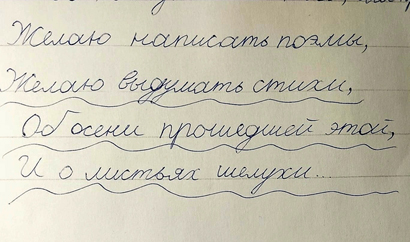 Желаю написать поэмы,
Желаю выдумать стихи,
Об осени прошедшей этой,
И о листьях шелухи...